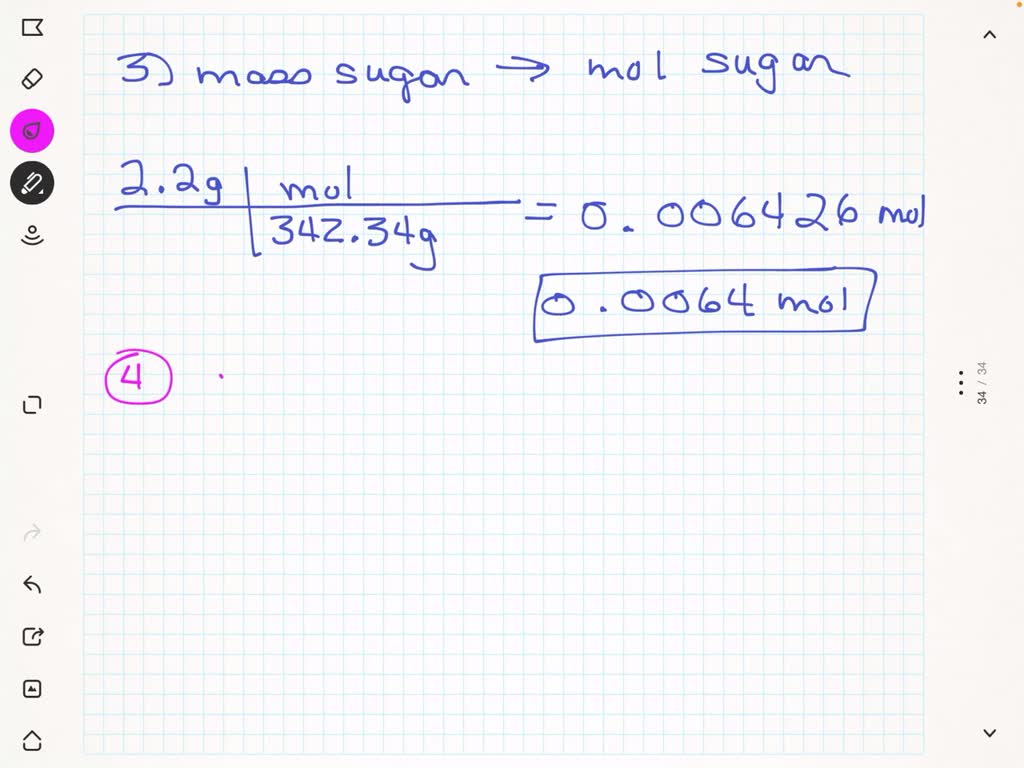 3) mass sugar → mol sugar
2.2g | mol
342.34g
= 0.006426 mol
0.0064 mol
4
34 / 34